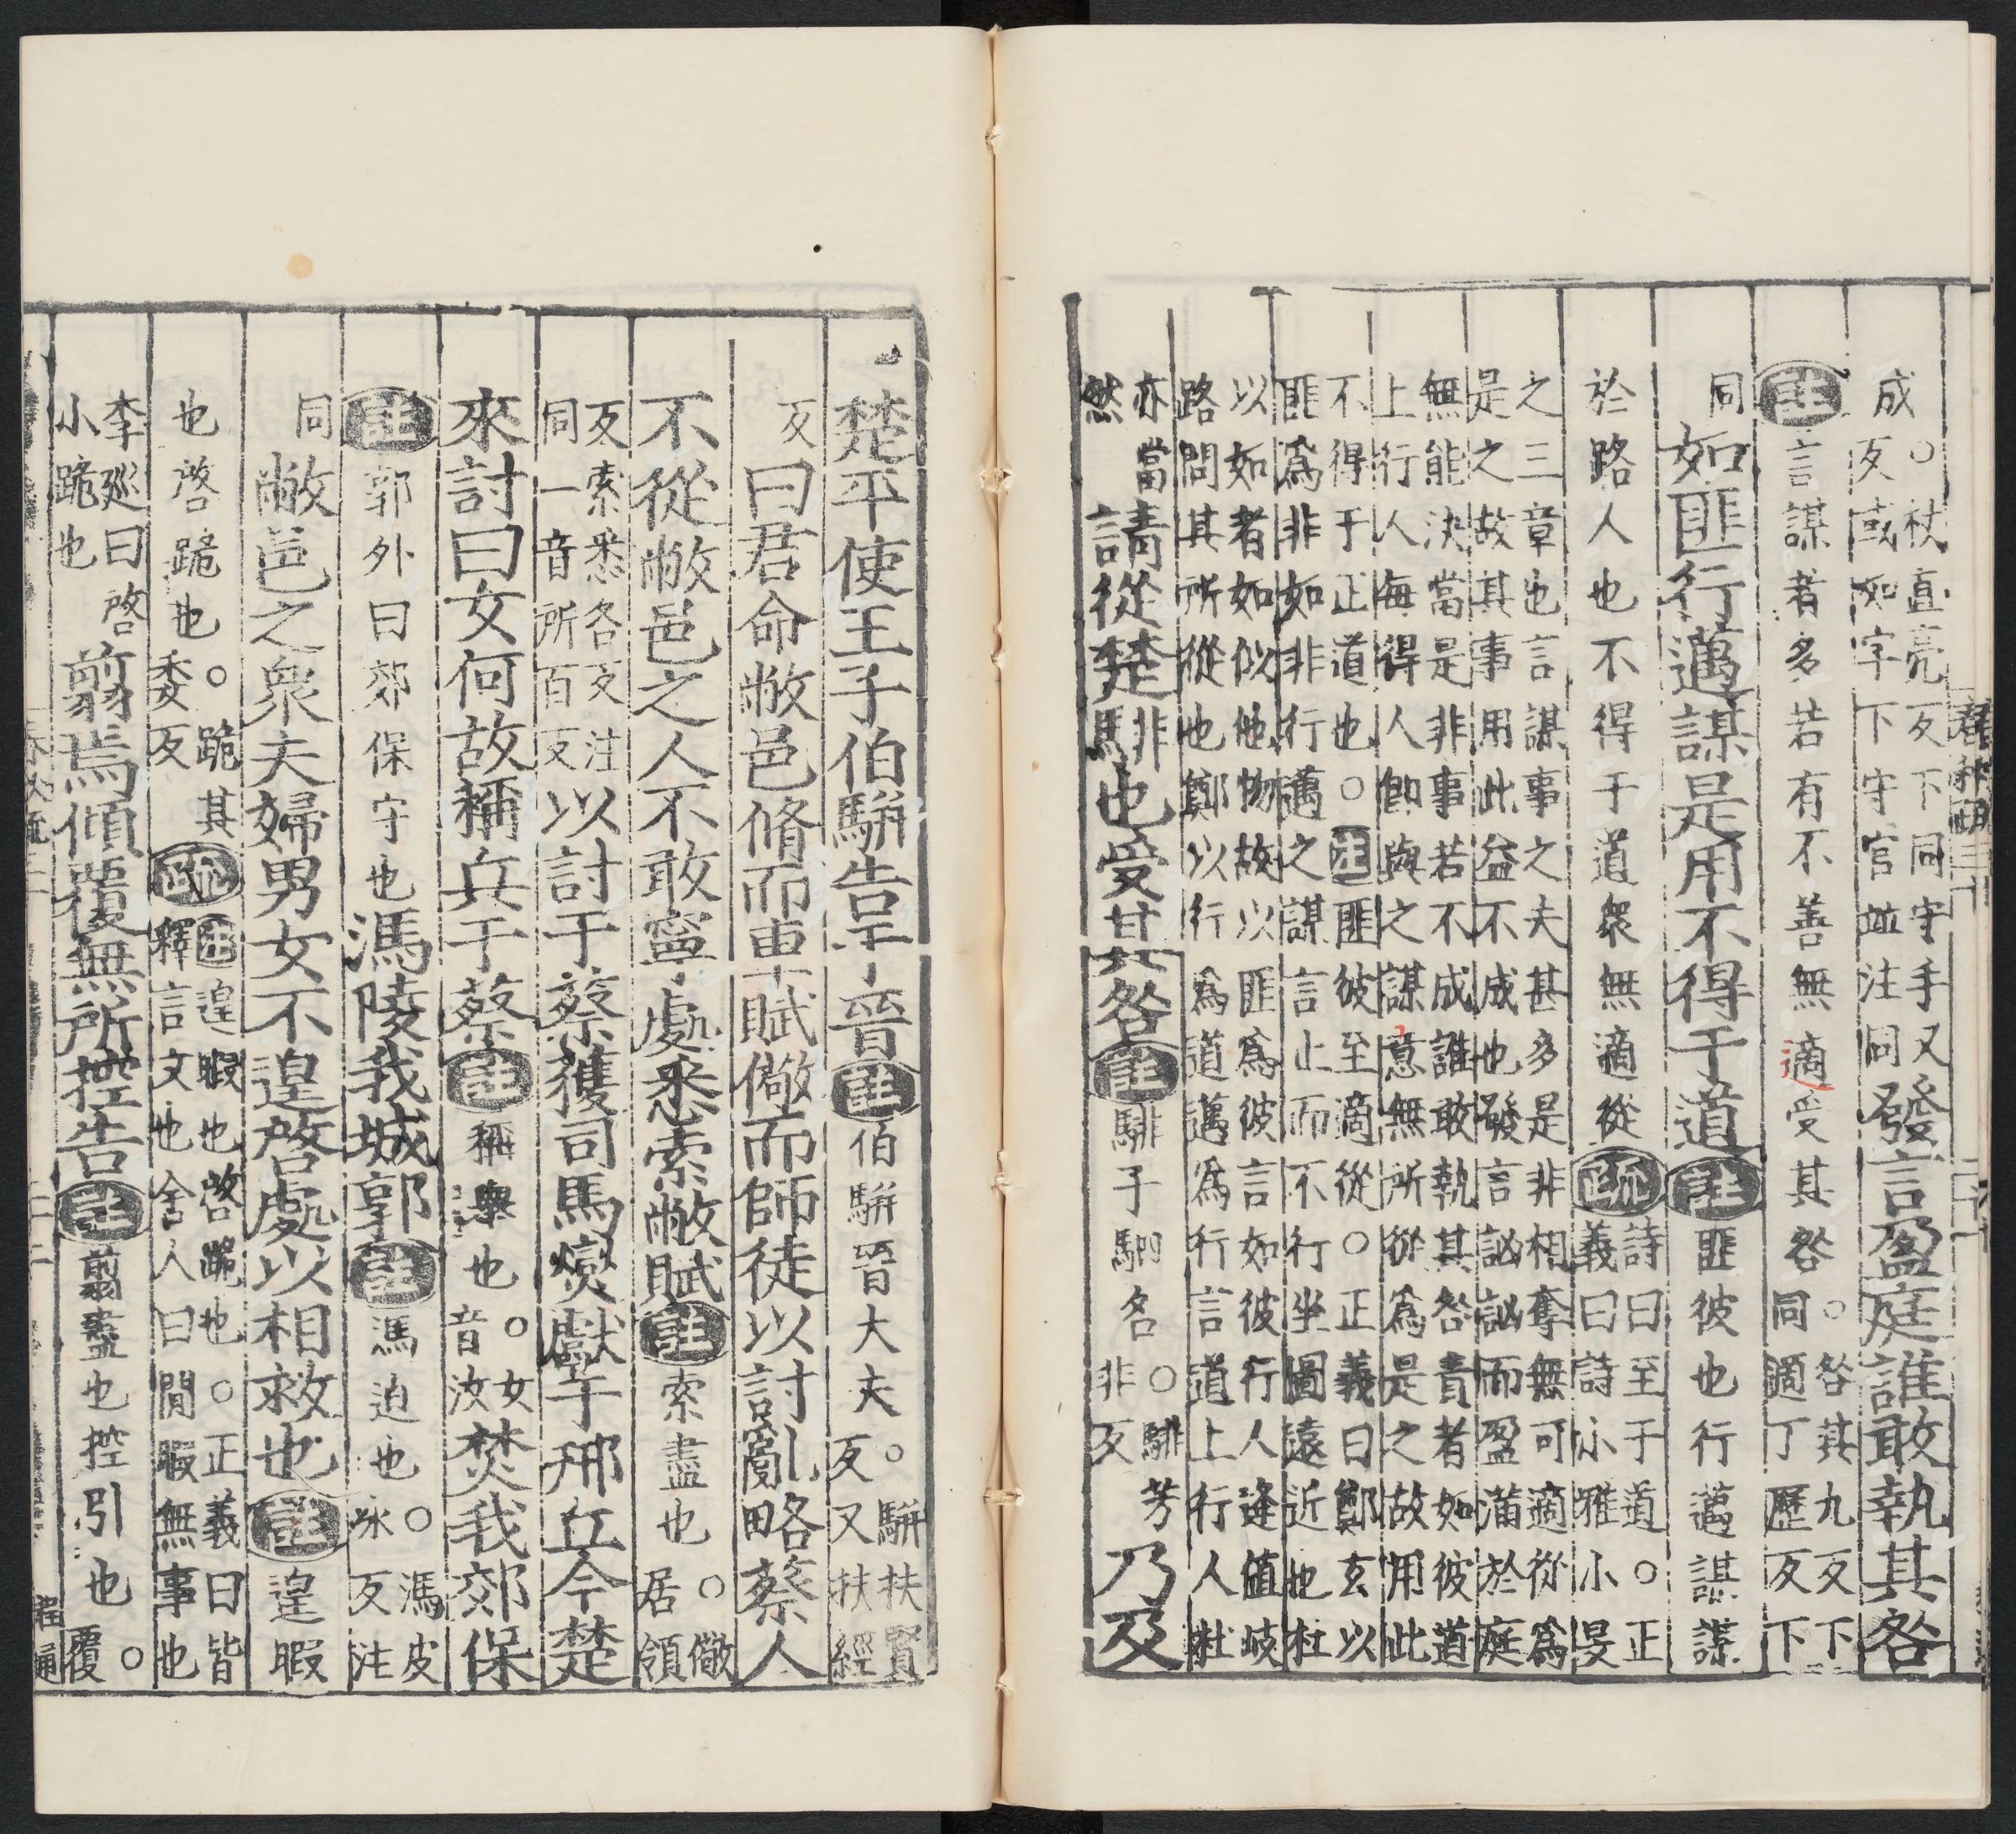 成○杖直亮反下同守手又反或如字下守官並注同發言盈庭誰敢執其咎
注言謀者多若有不善無適受其咎○咎其九反下同適丁歷反下
同如匪行邁謀是用不得于道注匪彼也行邁謀謀
於路人也不得于道衆無適從疏詩曰至于道○正義曰詩小雅小旻
之三章也言謀事之夫甚多是非相奪無可適從爲
是之故其事用此益不成也發言訩訩而盈滿於庭
無能決當是非事若不成誰敢執其咎責者如彼道
上行人每得人卽與之謀意無所從爲是之故用此
不得于正道也○注匪彼至適從○正義曰鄭玄以
匪爲非如非行邁之謀言止而不行坐圖遠近也杜
以如者如似他物故以匪爲彼言如彼行人逢值岐
路問其所從也鄭以行爲道邁爲行言道上行人杜
亦當然請從楚騑也受其咎注騑子駟名○騑芳非反乃及
楚平使王子伯駢告于晉注伯駢晉大夫○駢扶賢反又扶經
反曰君命敝邑脩而車賦儆而師徒以討亂略蔡人
不從敝邑之人不敢寧處悉索敝賦注索盡也○儆居領
反索悉各反注同一音所百反以討于蔡獲司馬燮獻于邢丘今楚
來討曰女何故稱兵于蔡注稱舉也○女音汝焚我郊保
注郭外曰郊保守也馮陵我城郭注馮迫也○馮皮冰反注
同敝邑之衆夫婦男女不遑啓處以相救也注遑暇
也啓跪也○跪其委反疏注遑暇也啓跪也○正義曰皆釋言文也舍人曰閒暇無事也
李巡曰啓小跪也翦焉傾覆無所控告注翦盡也控引也○覆